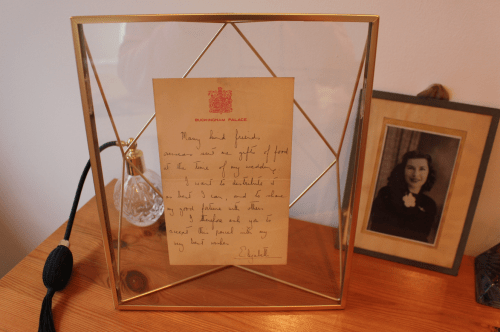 BUCKINGHAM PALACE
Many kind friends
overseas sent me gifts of food
at the time of my wedding.
I want to distribute it
as best I can, and to share
my good fortune with others.
I therefore ask you to
accept this parcel with my
very best wishes
Elizabeth